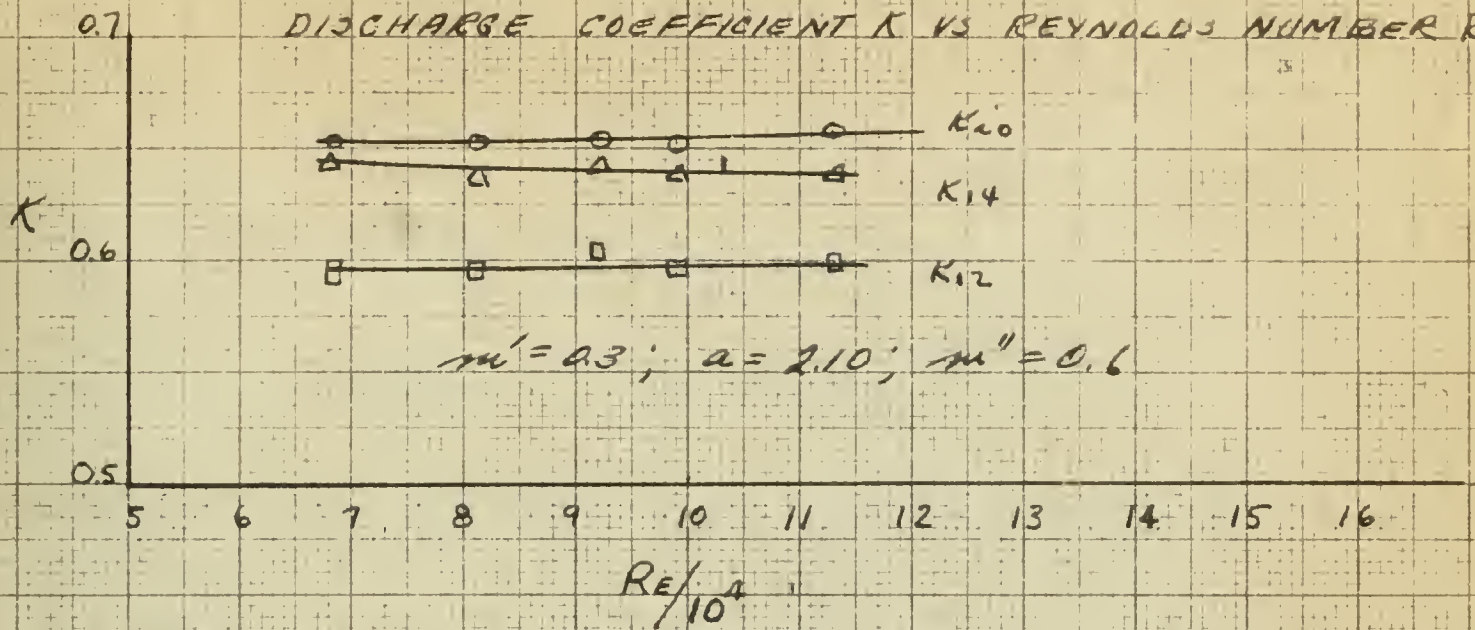 0.7
DISCHARGE COEFFICIENT K VS REYNOLDS NUMBER R
K
0.6
0.5
K10
K14
K12
m' = 0.3; a = 2.10; m" = 0.6
5 6 7 8 9 10 11 12 13 14 15 16
RE/10^4